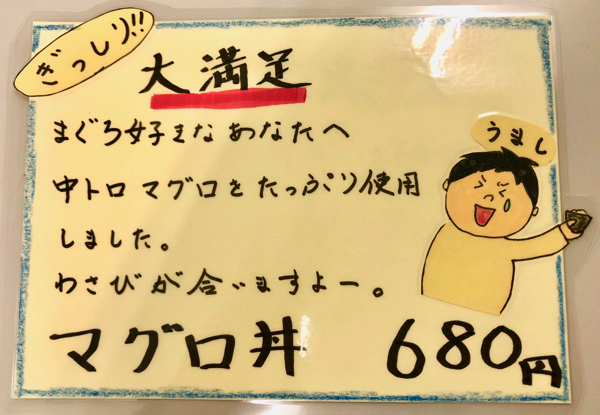 ぎっしり!!
大満足
まぐろ好きなあなたへ
中トロマグロをたっぷり使用
しました。
わさびが合いますよー。
うまし
マグロ丼 680円